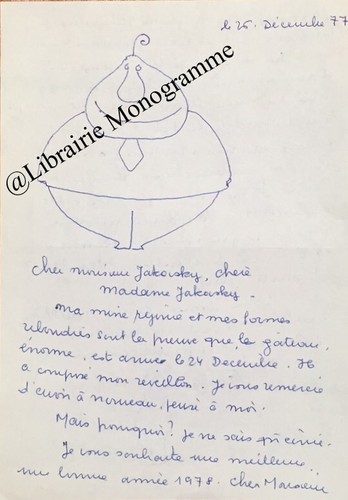 le 25. Décembre 77
@Librairie Monogramme
Cher monsieur Jakovsky, chère
madame Jakovsky.
Ma mine réjouie et mes formes
rebondies sont la preuve que le gâteau,
énorme, est arrivé le 24 Décembre. Il
a composé mon réveillon. Je vous remercie
d'avoir à nouveau, pensé à moi.
Mais pourquoi? Je ne sais
Je vous souhaite une meilleure
une bonne année 1978. Cher Monsieur